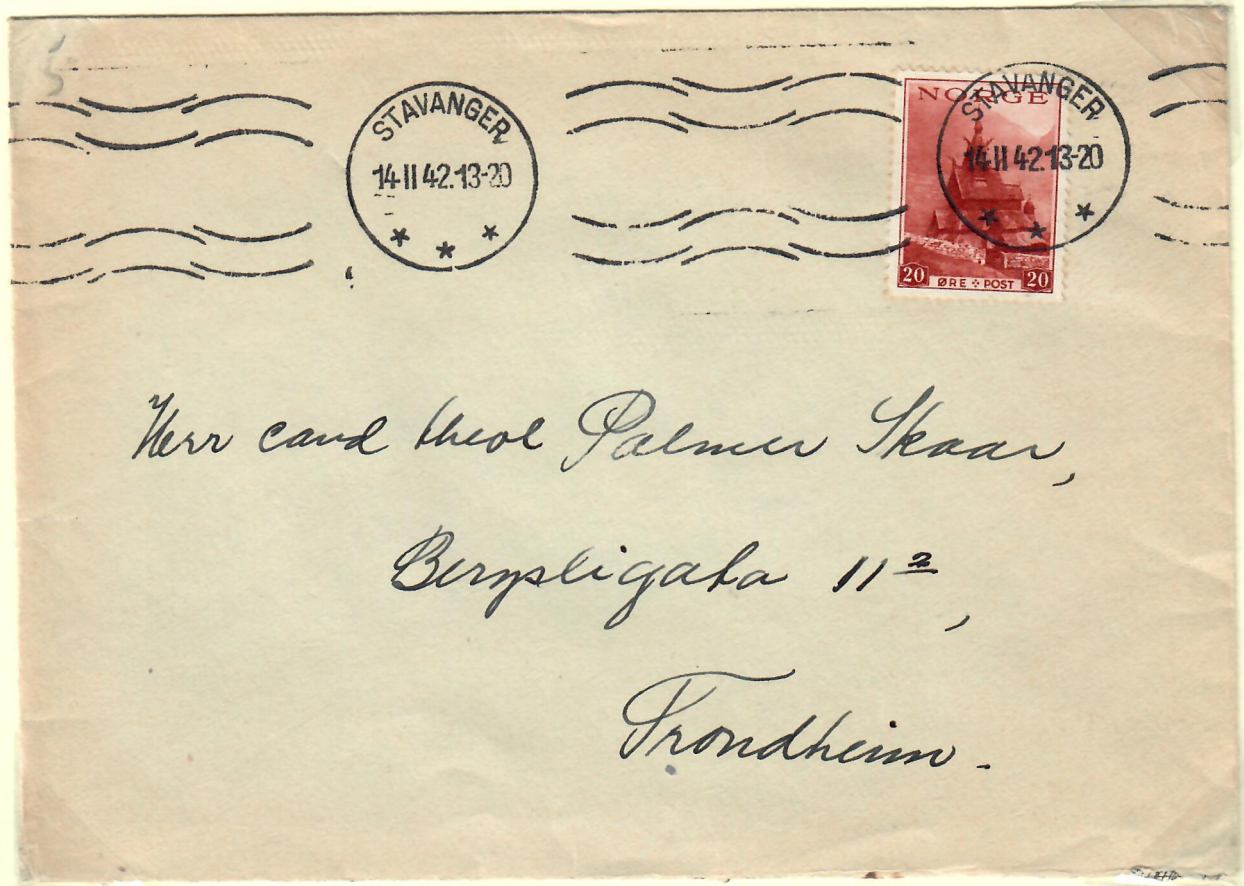 STAVANGER
14 II 42.13-20
NORGE
STAVANGER
14 II 42.13-20
20 ØRE POST 20
Herr cand theol Palmer Skaar,
Bergsligata 11 2,
Trondheim.